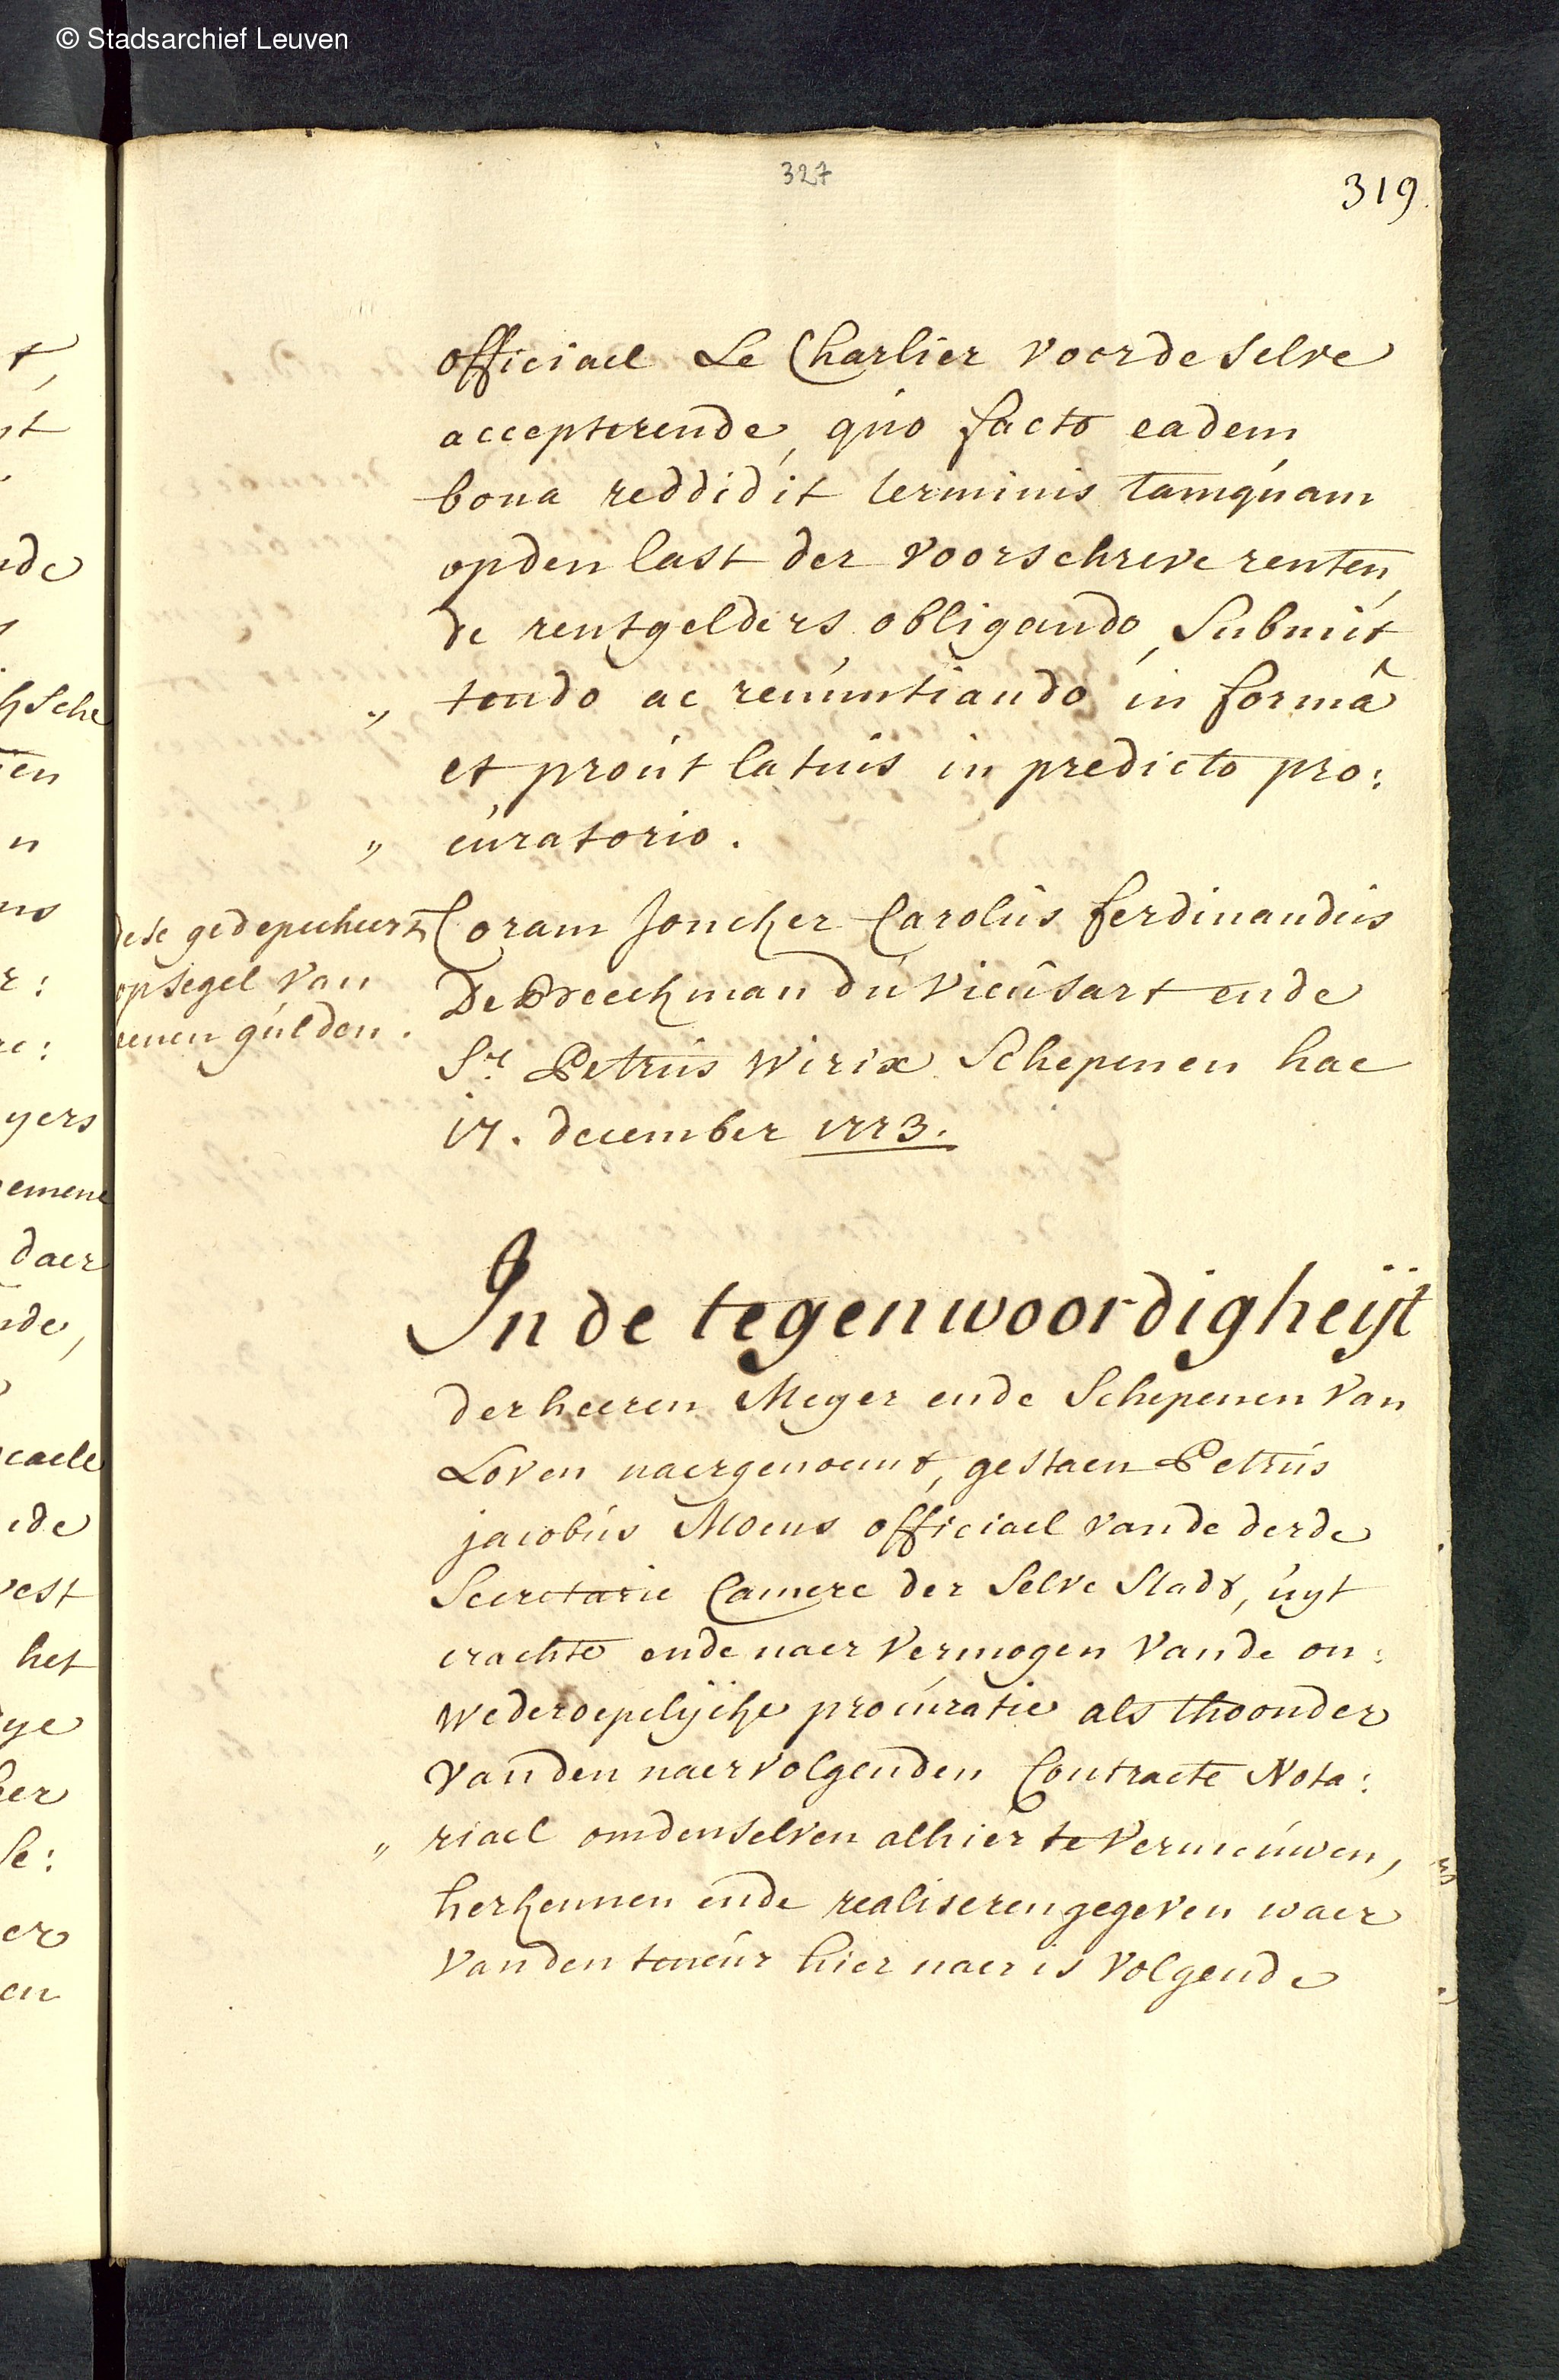 © Stadsarchief Leuven
327
319.
officiael Le Charlier voor de selve
accepterende, quo facto eadem
bona reddidit terminis tamquam
op den last der voorschreve renten,
de rentgelders obligando, submit
„ tendo ac renuntiando in formâ
et prout latius in predicto pro:
„ curatorio.
dese gedepecheert
op segel van
eenen gulden.
Coram Joncker Carolus ferdinandus
De Breeckman du Vieusart ende
Sr. Petrus Wirix Schepenen hac
17. december 1773.
In de tegenwoordigheijt
der heeren Meyer ende Schepenen van
Loven naergenoemt, gestaen Petrus
jacobus Moens officiael vande derde
Secretarie Camere der selve Stadt, uyt
crachte ende naer vermogen vande on:
wederoepelijcke procuratie als thoonder
van den naervolgenden Contracte Nota:
„ riael om den selven alhier te vernieuwen,
herkennen ende realiseren gegeven waer
van den teneur hier naer is volgende